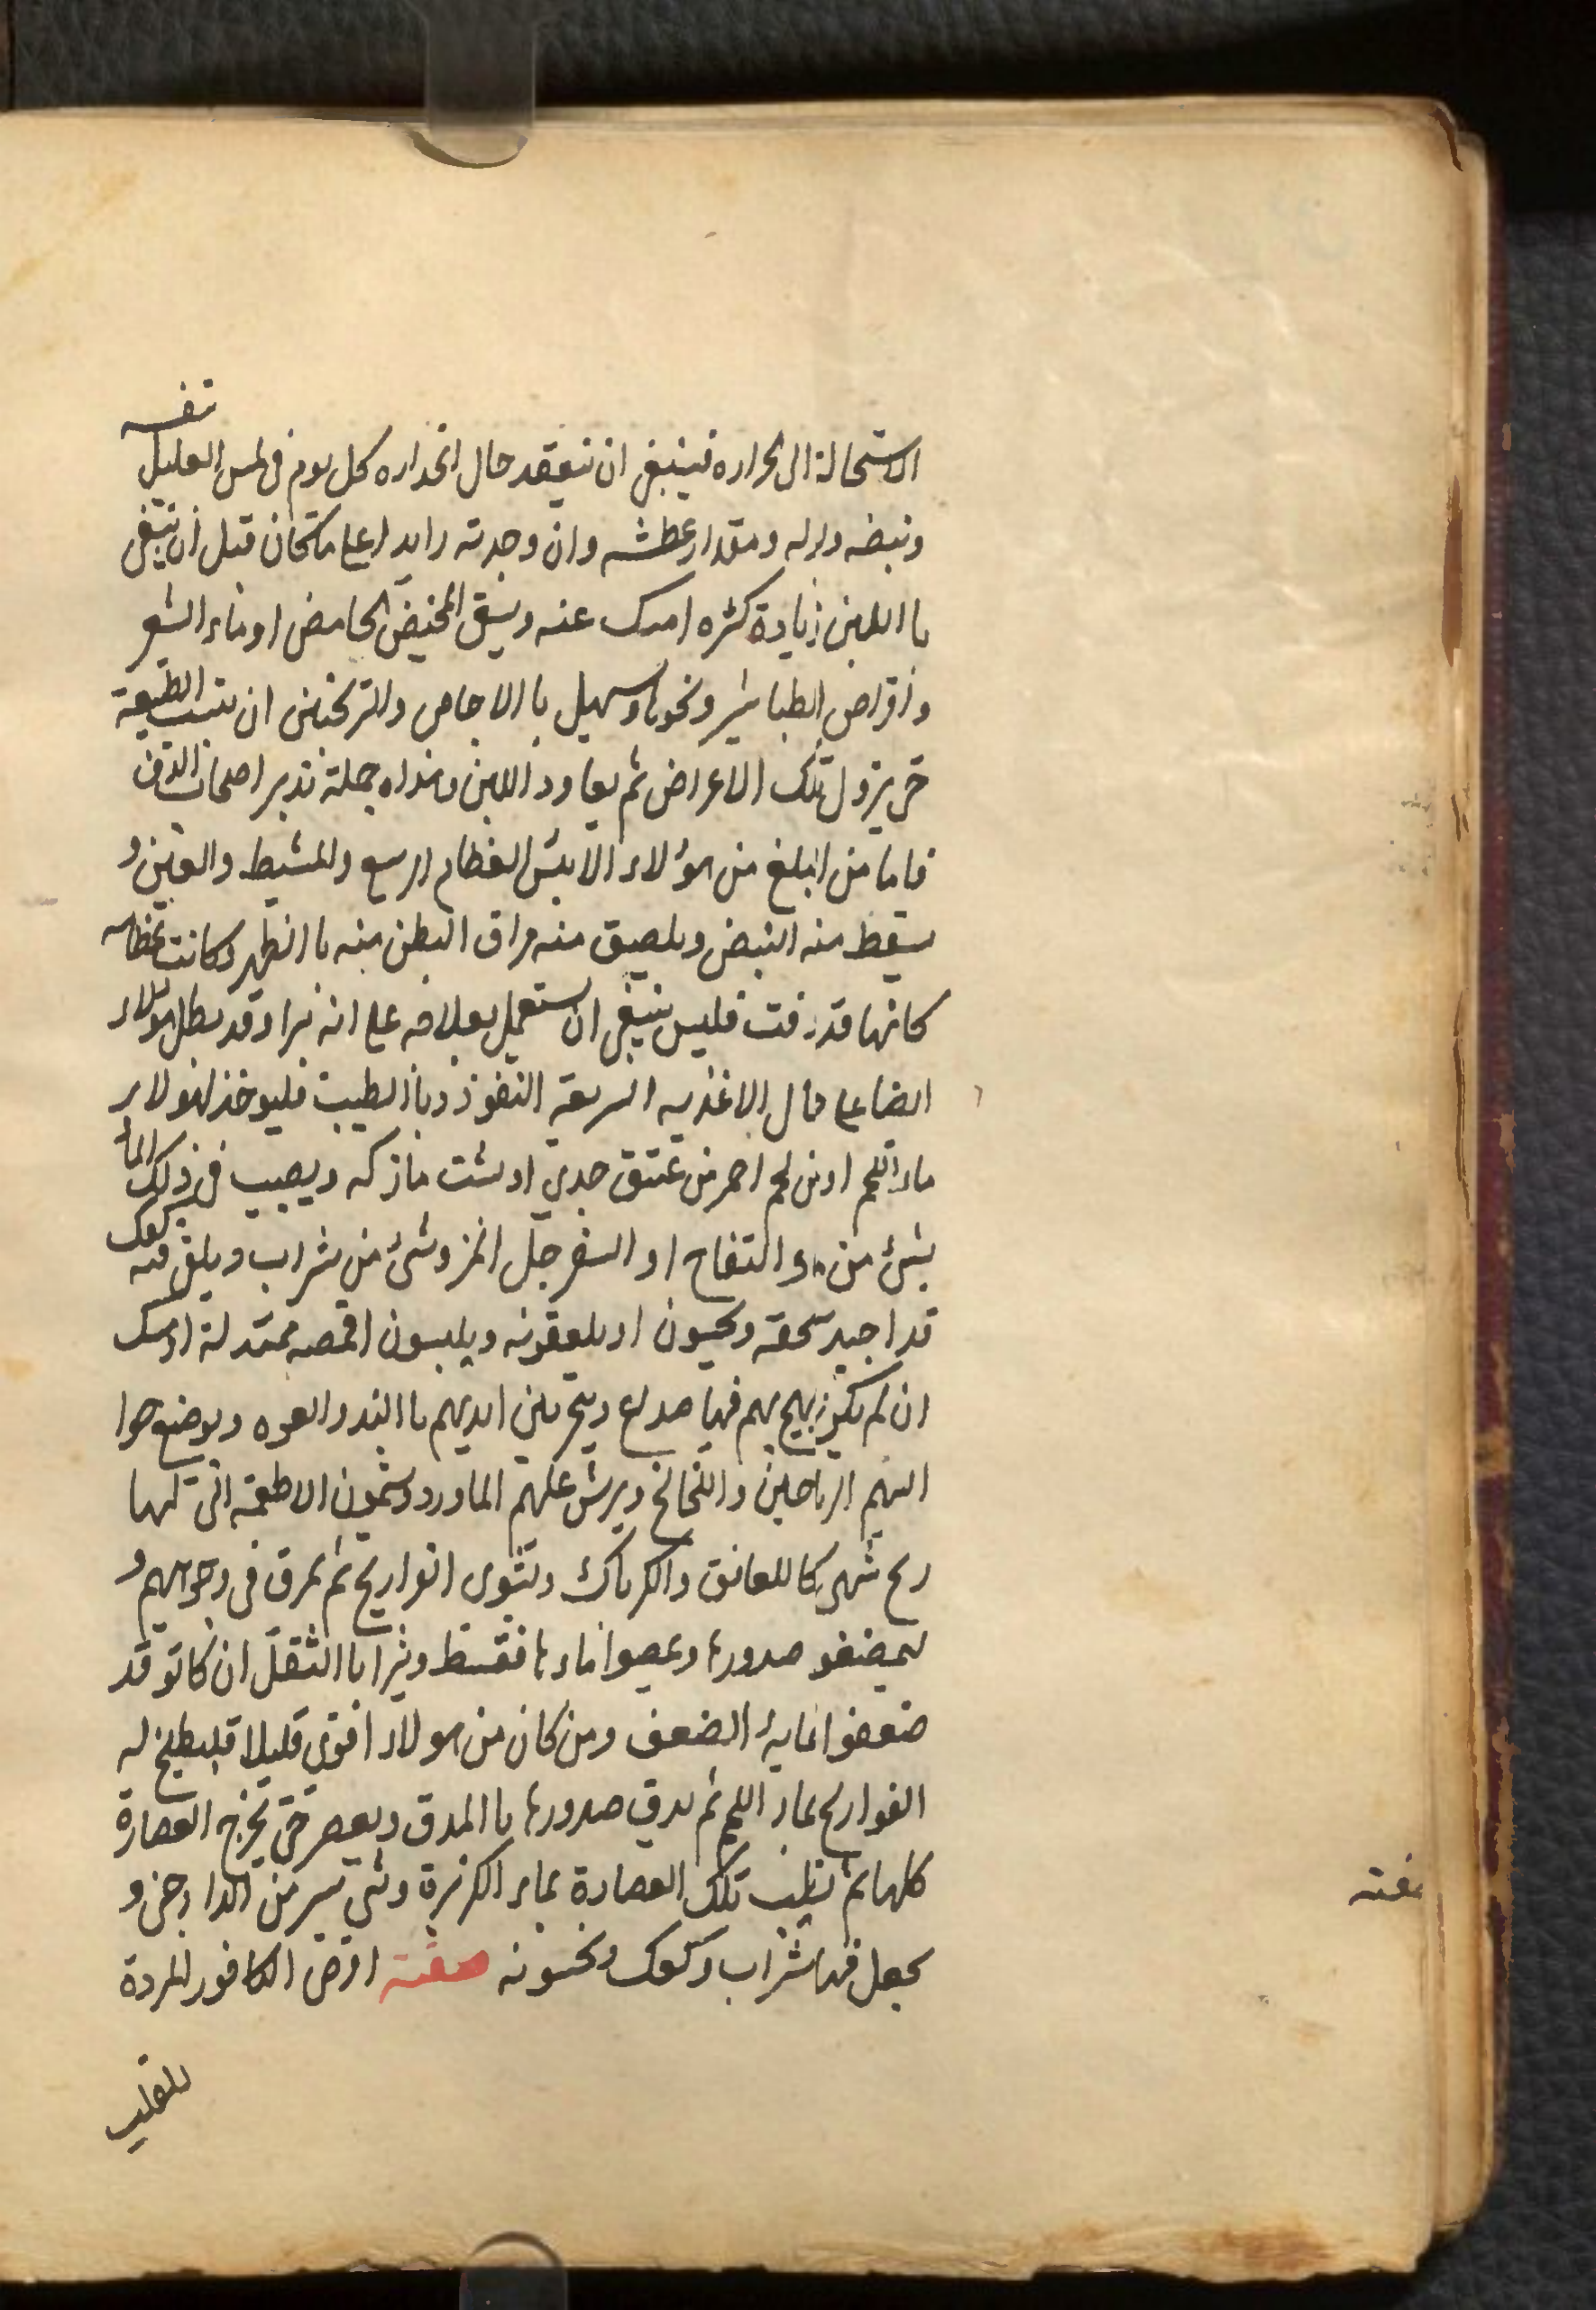 نفسه
الاستحالة الى الحراره فينبغى ان تتفقد حال انحداره كل يوم فى لمس العليل
ونبضه وبوله ومقدار عطشه وان وجدته زايدا على ما كان قبل ان يسقى
با اللبن زيادة كثره امسك عنه ويسقى المخيض الحامض او ماء الشعير
واقراص الطباشير ونحوها وسهيل با الاجاص والترنجبين ان يبست الطبيعة
حتى يزول تلك الاعراض ثم يعاود اللبن وهذاه جملة تدبير اصحاب الدق
فاما من ابلغ من هؤلاء الا يبس العظام الرسغ والمشيط والعين و
يسقط منه النبض ويلصيق منه مراق البطن منه با الظهر وكانت عظامه
كانها قد زفت فليس ينبغى ان يستعمل بعلاجه على انه يبرا وقد يطل هولاء
ايضا على حال الاغذيه السريعة النفوذ وبا الطيب فليوخذ لهولاء
ماء اللحم او من لحم احمر من عنق جدي او شئت ماز كه ويصيب فى ذلك الماء
بشئ من ماء التفاح او السفرجل المز وشئ من شراب ويلقى فيه كعك
قد اجيد سحقه ويحسون او يلعقونه ويلبسون اقمصه صندلة او مسك
ان لم يكن يهيج بهم فيها صداع ويبخر بين ايديهم با الند والعود ويوضع حوا
اليهم الرياحين واللخالخ ويرش عليهم الماورد ويشمون الاطعمة التى لها
ريح شهى كا للعانق والكرناك وتشوى الفواريج ثم يمرق فى وجوههم و
ليمضغو صدورها ويمصوا ماءها فقسط ويثرا با الثقل ان كانو قد
ضعفوا غاية الضعف ومن كان من هولاء اقوى قليلا فليطبخ له
الفواريح بماء اللحم ثم يدق صدورها با المدق ويعصر حتى تخرج العصارة
كلها ثم يطيب تلك العصارة بماء الكزبرة وشى يسير من الدارصينى و
يجعل فيها شراب وكعك ويحسونه صفته اقرص الكافور المبردة
صفته
للقلب